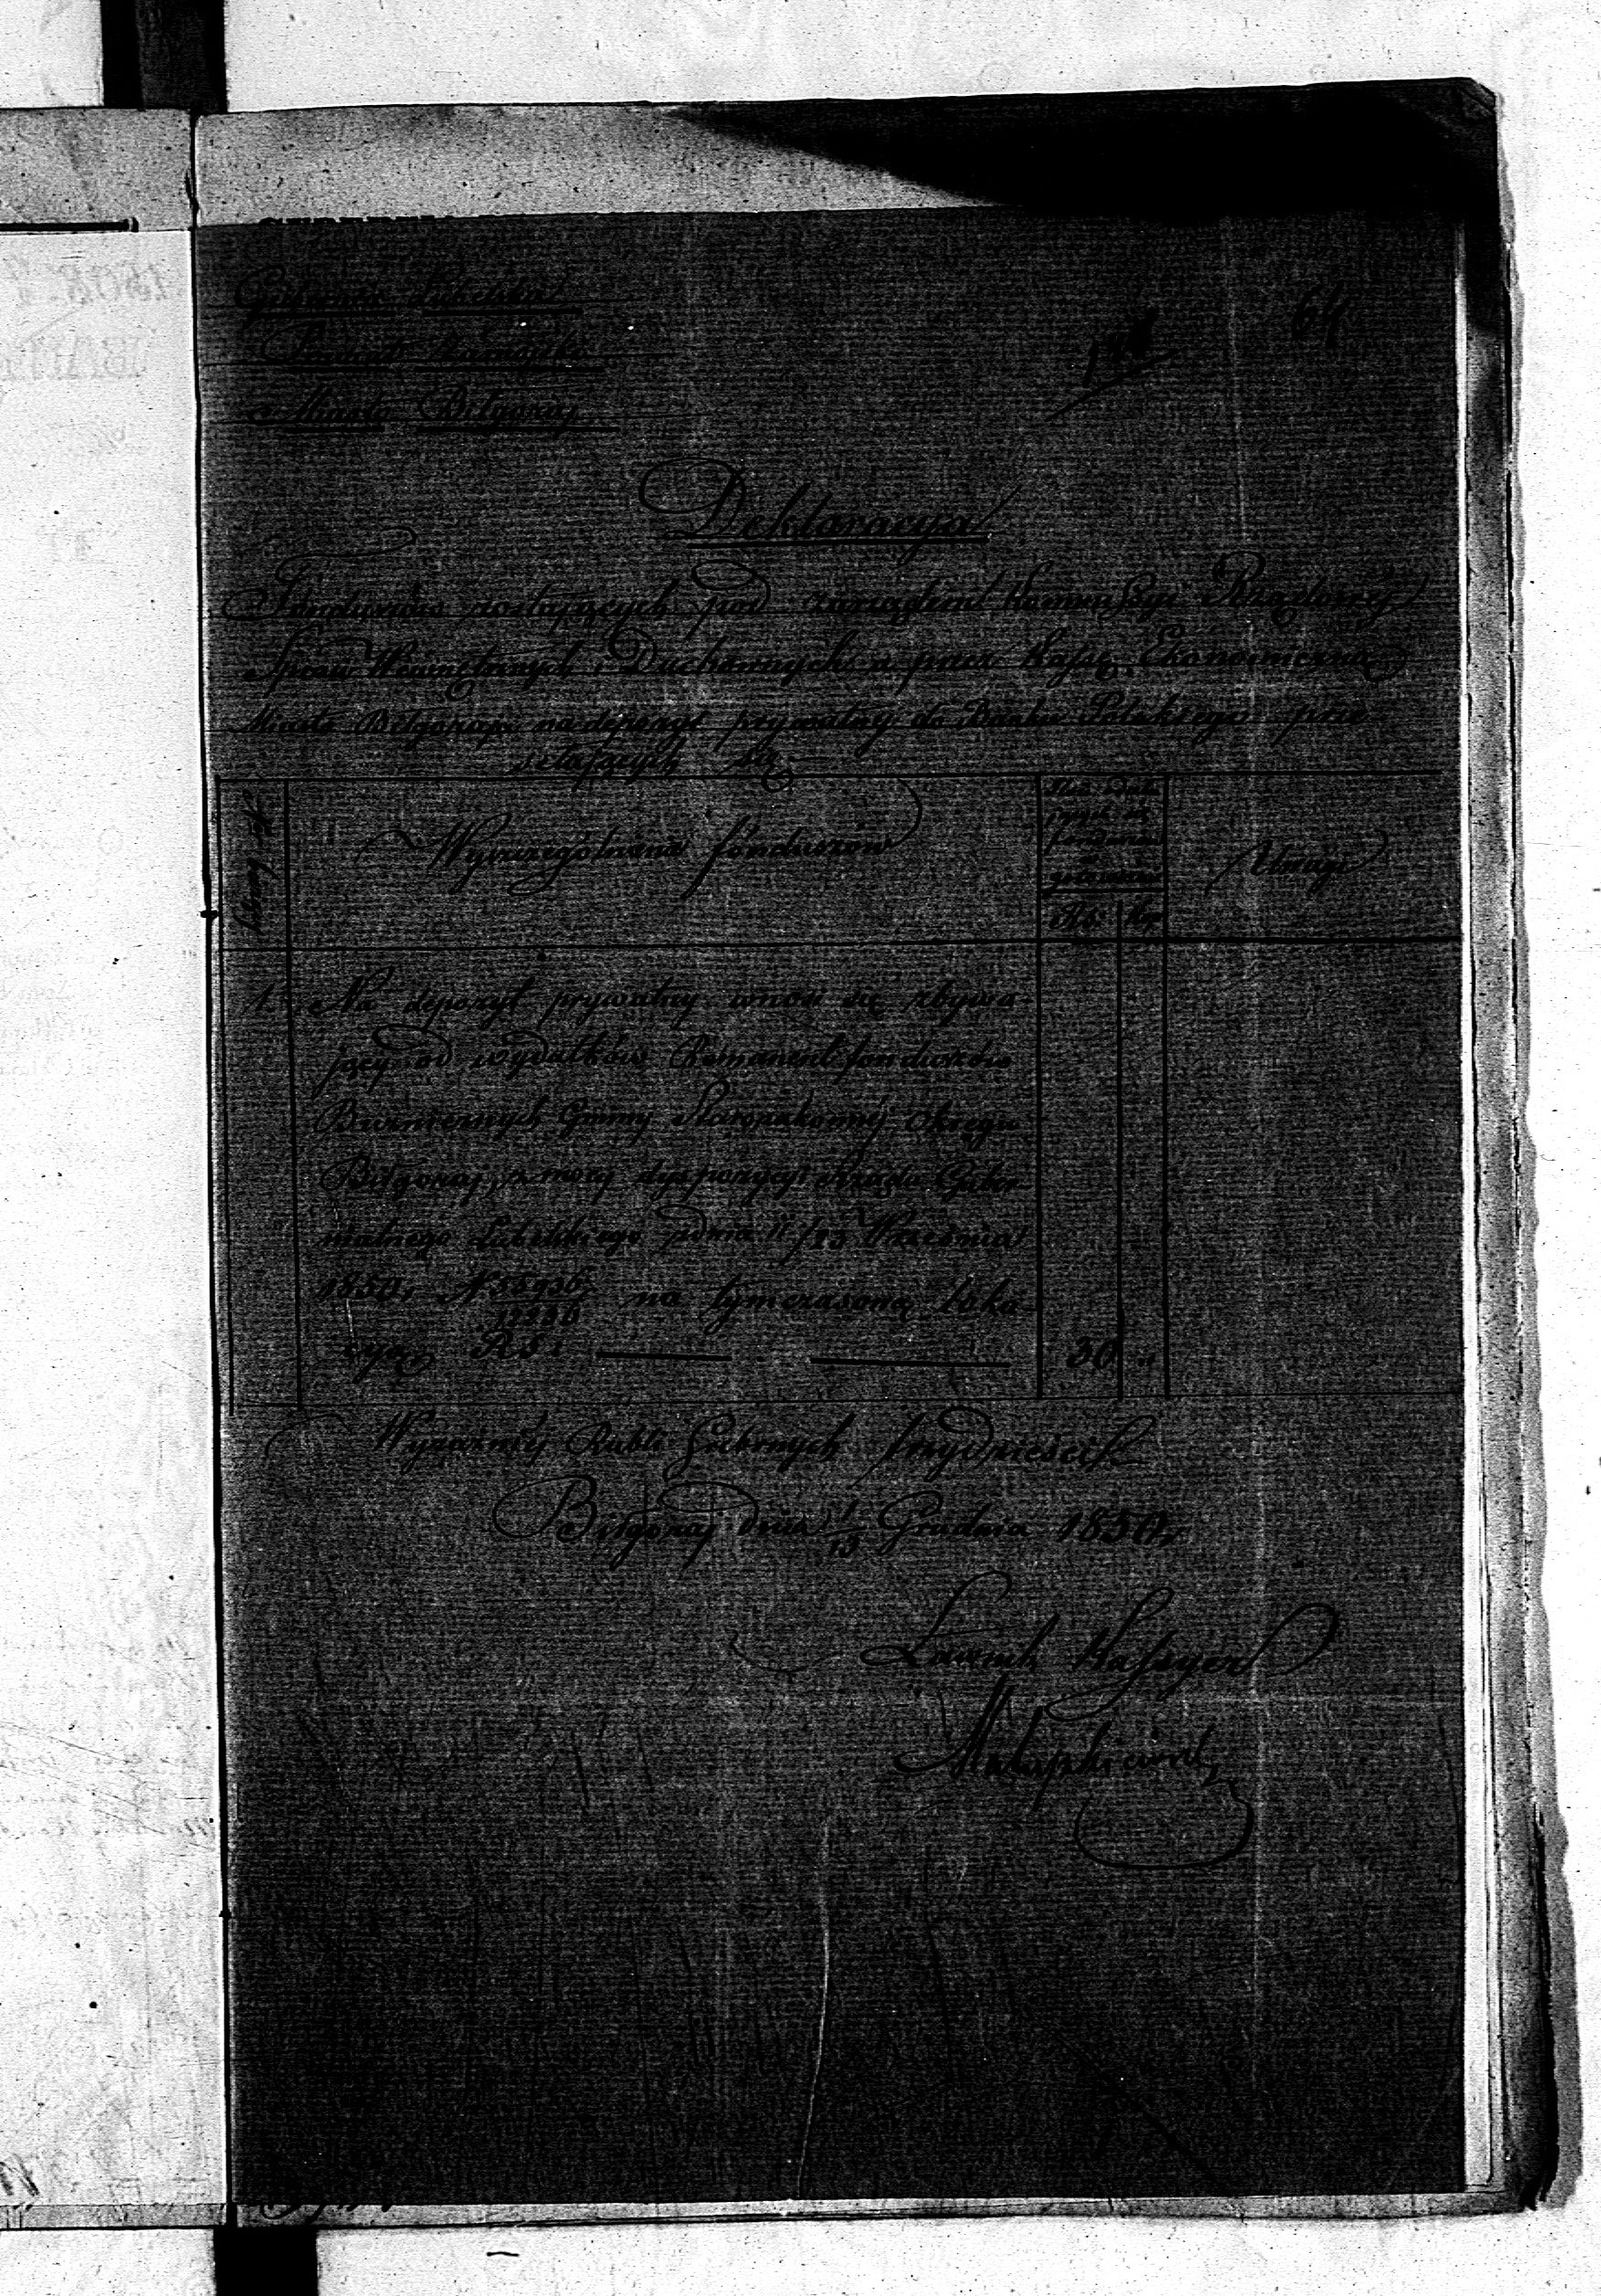 Gubernia Lubelska
Powiat Zamojski
Miasto Biłgoraj
64
Deklaracya
Funduszów zostających pod zarządem Kommissyi Rządowej
Spraw Wewnętrznych i Duchownych a przez Kassę Ekonomiczną
Miasta Biłgoraja na depozyt prywatny do Banku Polskiego prze
sełających się
Wyszczególnienie funduszów
Uwagi
Rs. kp.
1. Na depozyt prywatny wnosi się zbywa-
jący od wydatków Remanent funduszów
Gminy Okręgu
Biłgoraj, z mocy dyspozycyi Rządu Guber-
nialnego Lubelskiego z dnia 11/23 Września
1850 r. N na tymczasową loka-
cyą RS. 30 "
Wyraźniej Rubli Srebrnych trzydzieści
Biłgoraj dnia 1/13 Grudnia 1850 r.
Kassyer